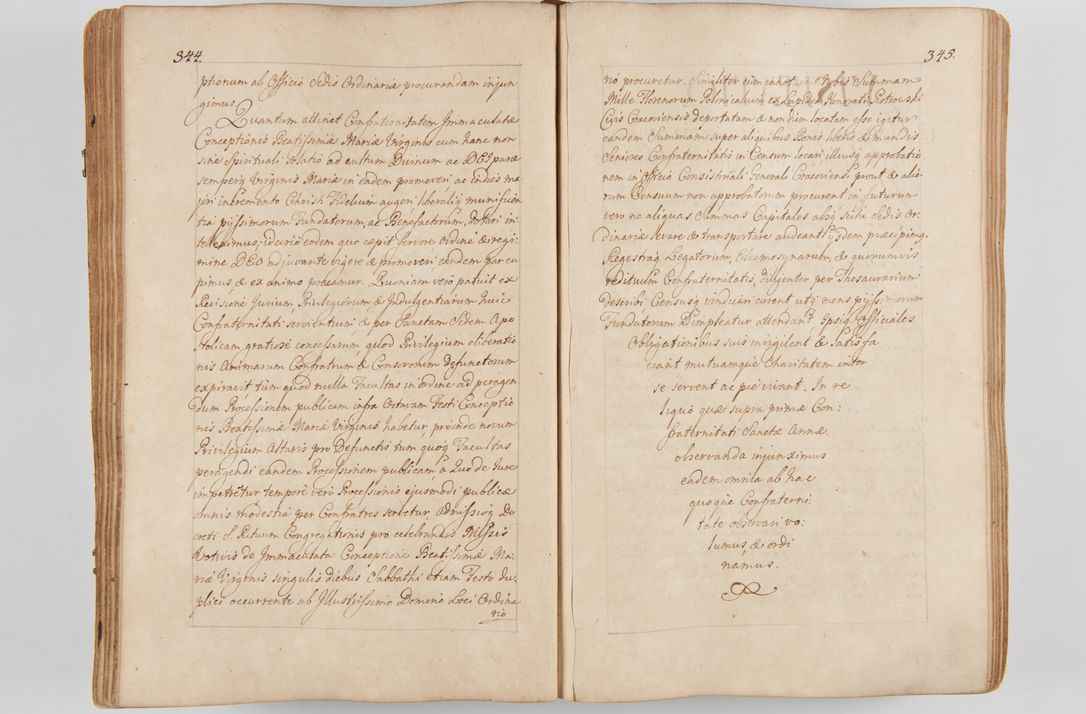 344.
ptionum al Officio Sedis Ordinariæ procurandam injun
gimus.
Quantum attinet Confraternitatem Immaculatæ
Conceptionis Beatissimæ Mariæ Virginis cum hanc non
sine Spirituali Solatio ad cultum Divinum ac DEI paræ
semperq Virginis Mariæ in eadem promoveri ac indies ma
jori incremento Christi Fidelium augeri liberaliq munificen
tia pijssimorum Fundatorum, ac Benefactorum, dotari in
telleximus; idcirco eodem quo cæpit fervore Ordine & regi
mine DEO adjuvante vigere & promoveri eandem par cu
pimus & ex animo præcamur. Quoniam vero patuit ex
Revisione Jurium Privilegiorum & Indulgentiarum huic
Confraternitati servientium & per Sanctam Sedem Apo
stolicam gratiose concessarum, quod Privilegium eliberatio
nis Animarum Confratrum & Consororum defunctorum
expiravit tum quod nulla Facultas in ordine ad peragen
dum Processionem publicam infra Octavam Festi Conceptio
nis Beatissimæ Mariæ Virginis habetur, proinde novum
Privilegium Altaris pro Defunctis tum quoq Facultas
peragendi eandem Processionem publicam, a Quo de Jure
impetretur tempore vero Processionis ejusmodi publicæ
omnis modestia per Confratres servetur. Admissioq De
creti S. Rituum Congregationis pro celebrandis Missis
Votivis de Immaculata Conceptione Beatissimæ Ma
riæ Virginis singulis diebus Sabbathi etiam Festo du
plici occurrente ab Illustrissimo Domino Loci Ordina
rio
345.
rio procuretur. Similiter cum nobis Summam
Mille Florenorum Polonicalium ex Honorati Piotrowski
Civis Cracoviensis deportatam & nondum locatam esse igitur
eandem Summam super aliquibus Bonis liberis & mundis
Seniores Confraternitatis in Censum locari illiusq approbatio
nem in Officio Consistoriali Generali Cracoviensi prout & alio
rum Censuum non approbatorum procurent in futurum
vero ne aliquas Summas Capitales absq scitu Sedis Or
dinariæ levare & transportare audeant ijsdem præcipimq.
Regestraq Legatorum, Eleemosynarum, & quorumvis
redituum Confraternitatis, diligenter per Thesaurarium
describi Censusq vindicari curent utq mens pijssimorum
Fundatorum adimpleatur attendant. Ipsiq Officiales
Obligationibus suis invigilent & satisfa
ciant mutuamque Charitatem inter
se servent ac pie vivant. In re
liquo quæ supra primæ Con:
fraternitati Sanctæ Annæ.
observanda injunximus
eadem omnia ab hac
quoque Confraterni:
tate observari vo:
lumus & ordi
namus.